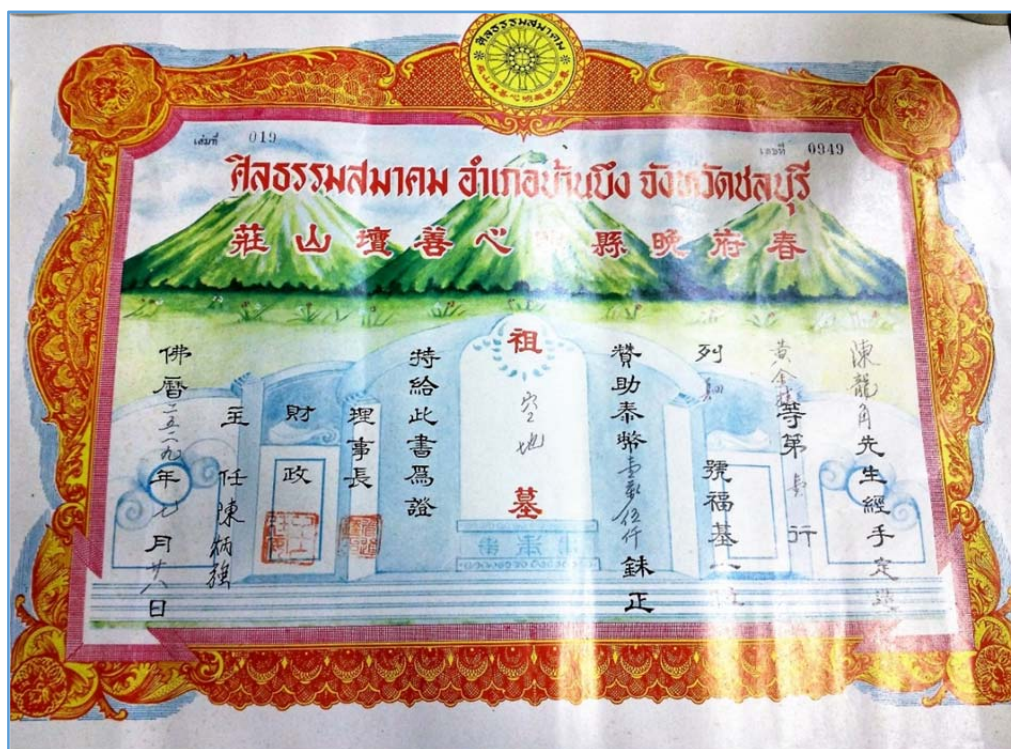 ศีลธรรมสมาคม
เล่มที่ 019
เลขที่ 0949
ศีลธรรมสมาคม อำเภอบ้านบึง จังหวัดชลบุรี
春府晚縣心善壇山莊
陳龍角先生經手定造
黃金 等第 行
列 號福基一位
贊助泰幣壹萬伍仟銖正
祖
空地
墓
持給此書爲證
理事長
財政
主任陳炳強
佛曆二五二九年七月廿八日